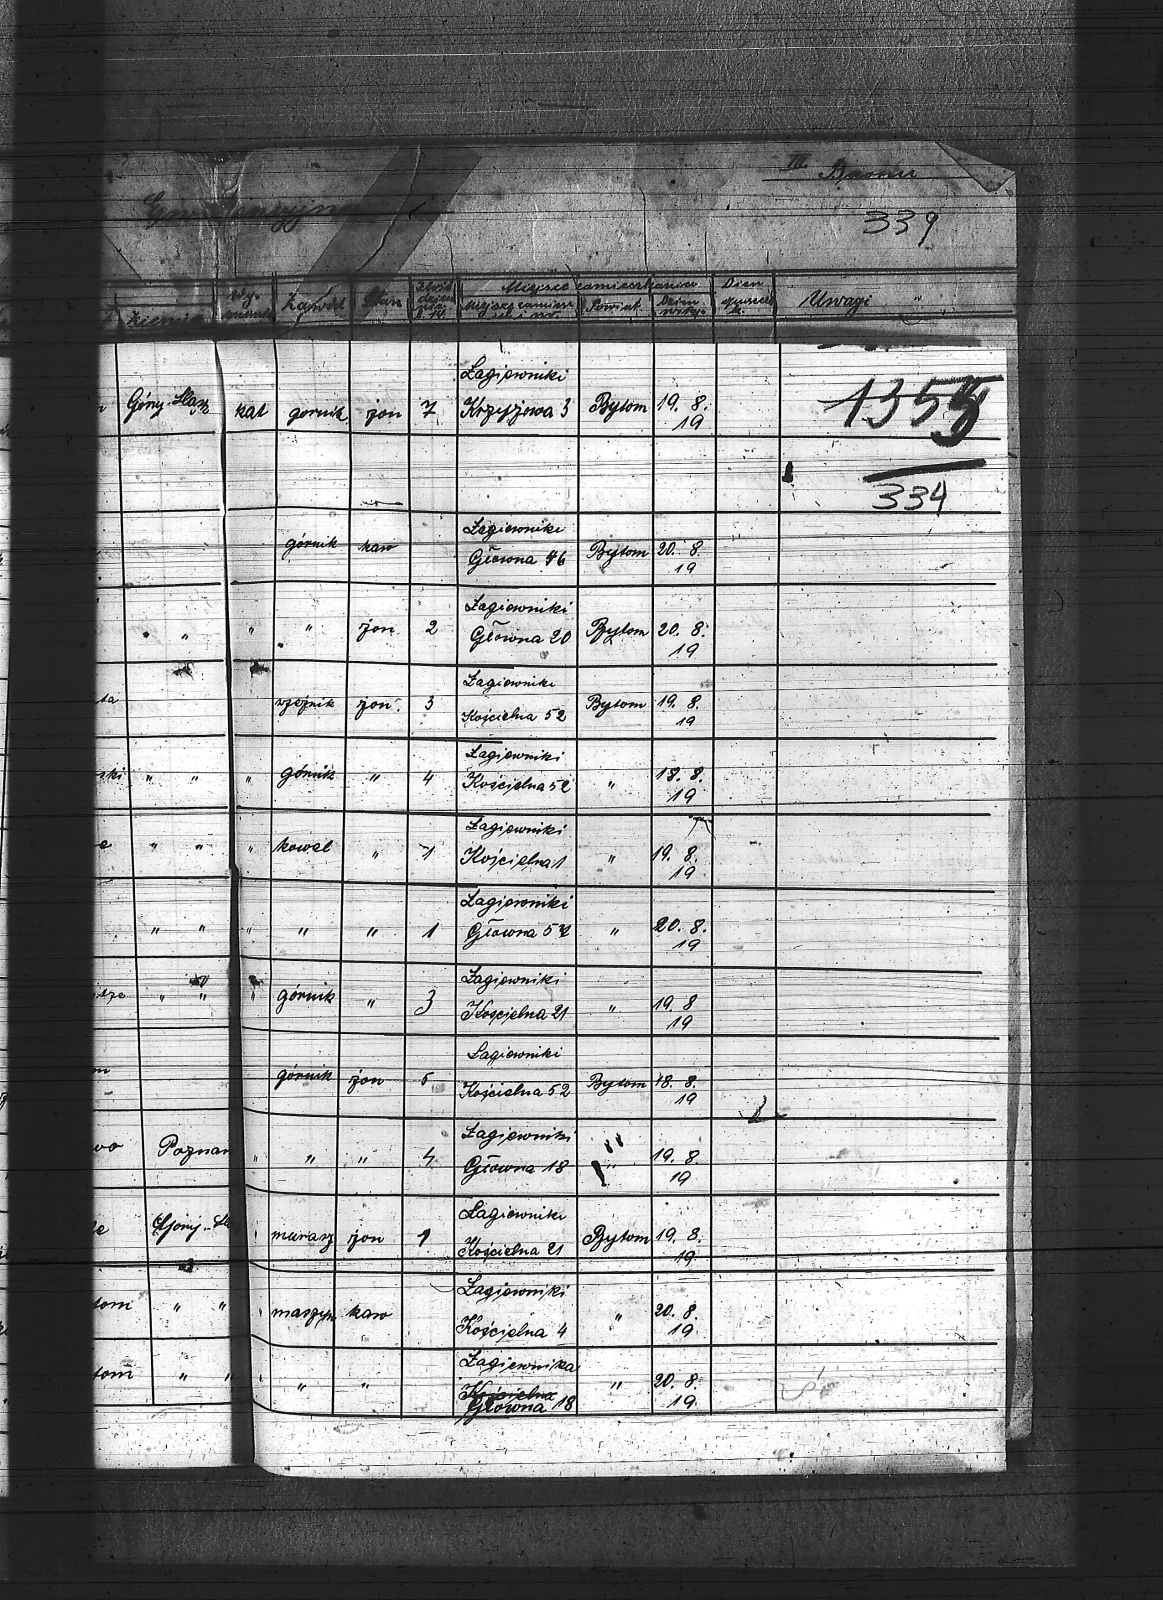 III. Baonu
339
Zawód Stan Miejsce zamieszkania Dzień
Ziemia Powiat Dzień Uwagi
Łagiewniki
Góny-Śląsk kat gornik żon 7 Krzyżowa 3 Bytom 19. 8. 1355
19
334
Łagiewniki
górnik kaw Główna 46 Bytom 20. 8.
19
Łagiewniki
" " " " żon 2 Główna 20 Bytom 20. 8.
19
Łagiewniki
ta rzeźnik żon 3 Kościelna 52 Bytom 19. 8.
19
Łagiewniki
ski " " " górnik " 4 Kościelna 52 " 18. 8.
19
Łagiewniki
e " " " kowal " 1 Kościelna 1 " 19. 8.
19
Łagiewniki
" " " " " 1 Główna 52 " 20. 8.
19
Łagiewniki
" " " górnik " 3 Kościelna 21 " 19. 8
19
Łagiewniki
górnik żon 5 Kościelna 52 Bytom 18. 8.
19
Łagiewniki
wo Poznań " " " 4 Główna 18 " 19. 8.
19
Łagiewniki
murarz żon 1 Kościelna 21 Bytom 19. 8.
19
Łagiewniki
tom " " " maszyn kaw Kościelna 4 " 20. 8.
19
Łagiewnika
tom " " " " " Kościelna " 20. 8.
Główna 18 19.